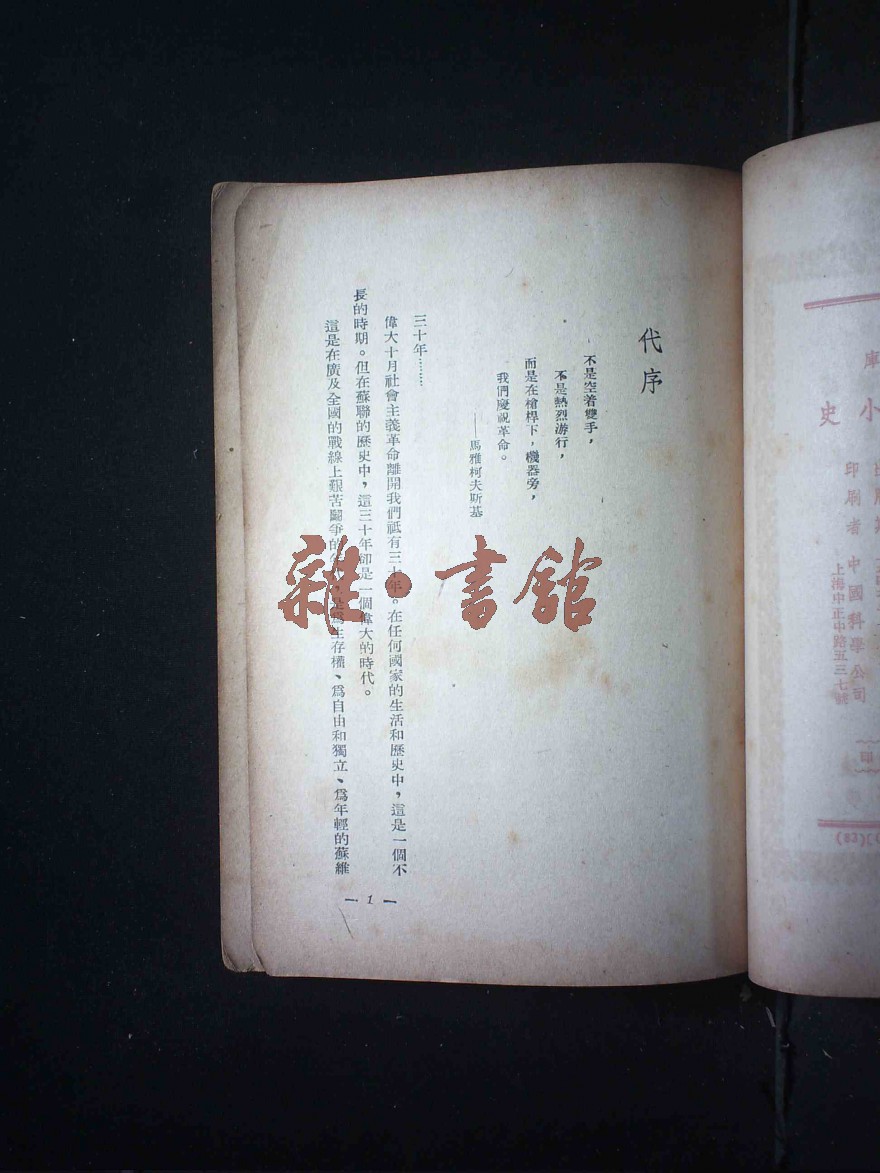 代序
不是空着雙手,
不是熱烈游行,
而是在槍桿下,機器旁,
我們慶祝革命。
——馬雅柯夫斯基
三十年……
偉大十月社會主義革命離開我們祗有三十年。在任何國家的生活和歷史中,這是一個不
長的時期。但在蘇聯的歷史中,這三十年卻是一個偉大的時代。
這是在廣及全國的戰線上艱苦鬭爭的年,是爲生存權、爲自由和獨立、爲年輕的蘇維
— 1 —
雜·書館
小史
印刷者 中國科學公司
上海中正中路五三七號
印